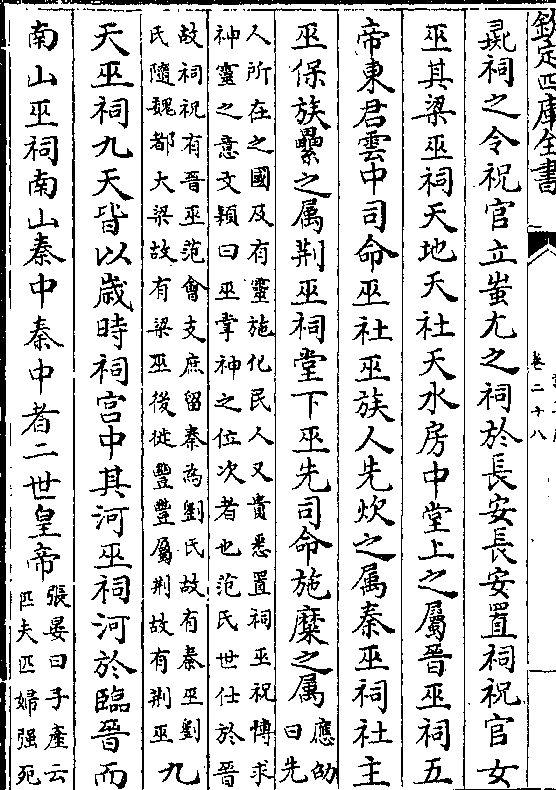 欽定四庫全書
卷二十八
毚祠之令祝官立蚩尤之祠於長安長安置祠祝官女
巫其梁巫祠天地天社天水房中堂上之屬晉巫祠五
帝東君雲中司命巫社巫族人先炊之属秦巫祠社主
巫保族纍之属荆巫祠堂下巫先司命施糜之属
應劭
曰先
人所在之國及有靈施化民人又貴悉置祠巫祝博求
神靈之意文穎曰巫掌神之位次者也范氏世仕於晉
故祠祝有晉巫范會支庶留秦為劉氏故有秦巫劉
氏隨魏都大梁故有梁巫後徙豐豐屬荆故有荆巫
九
天巫祠九天皆以歳時祠宫中其河巫祠河於臨晉而
南山巫祠南山秦中秦中者二世皇帝
張晏曰子產云
匹夫匹婦强死